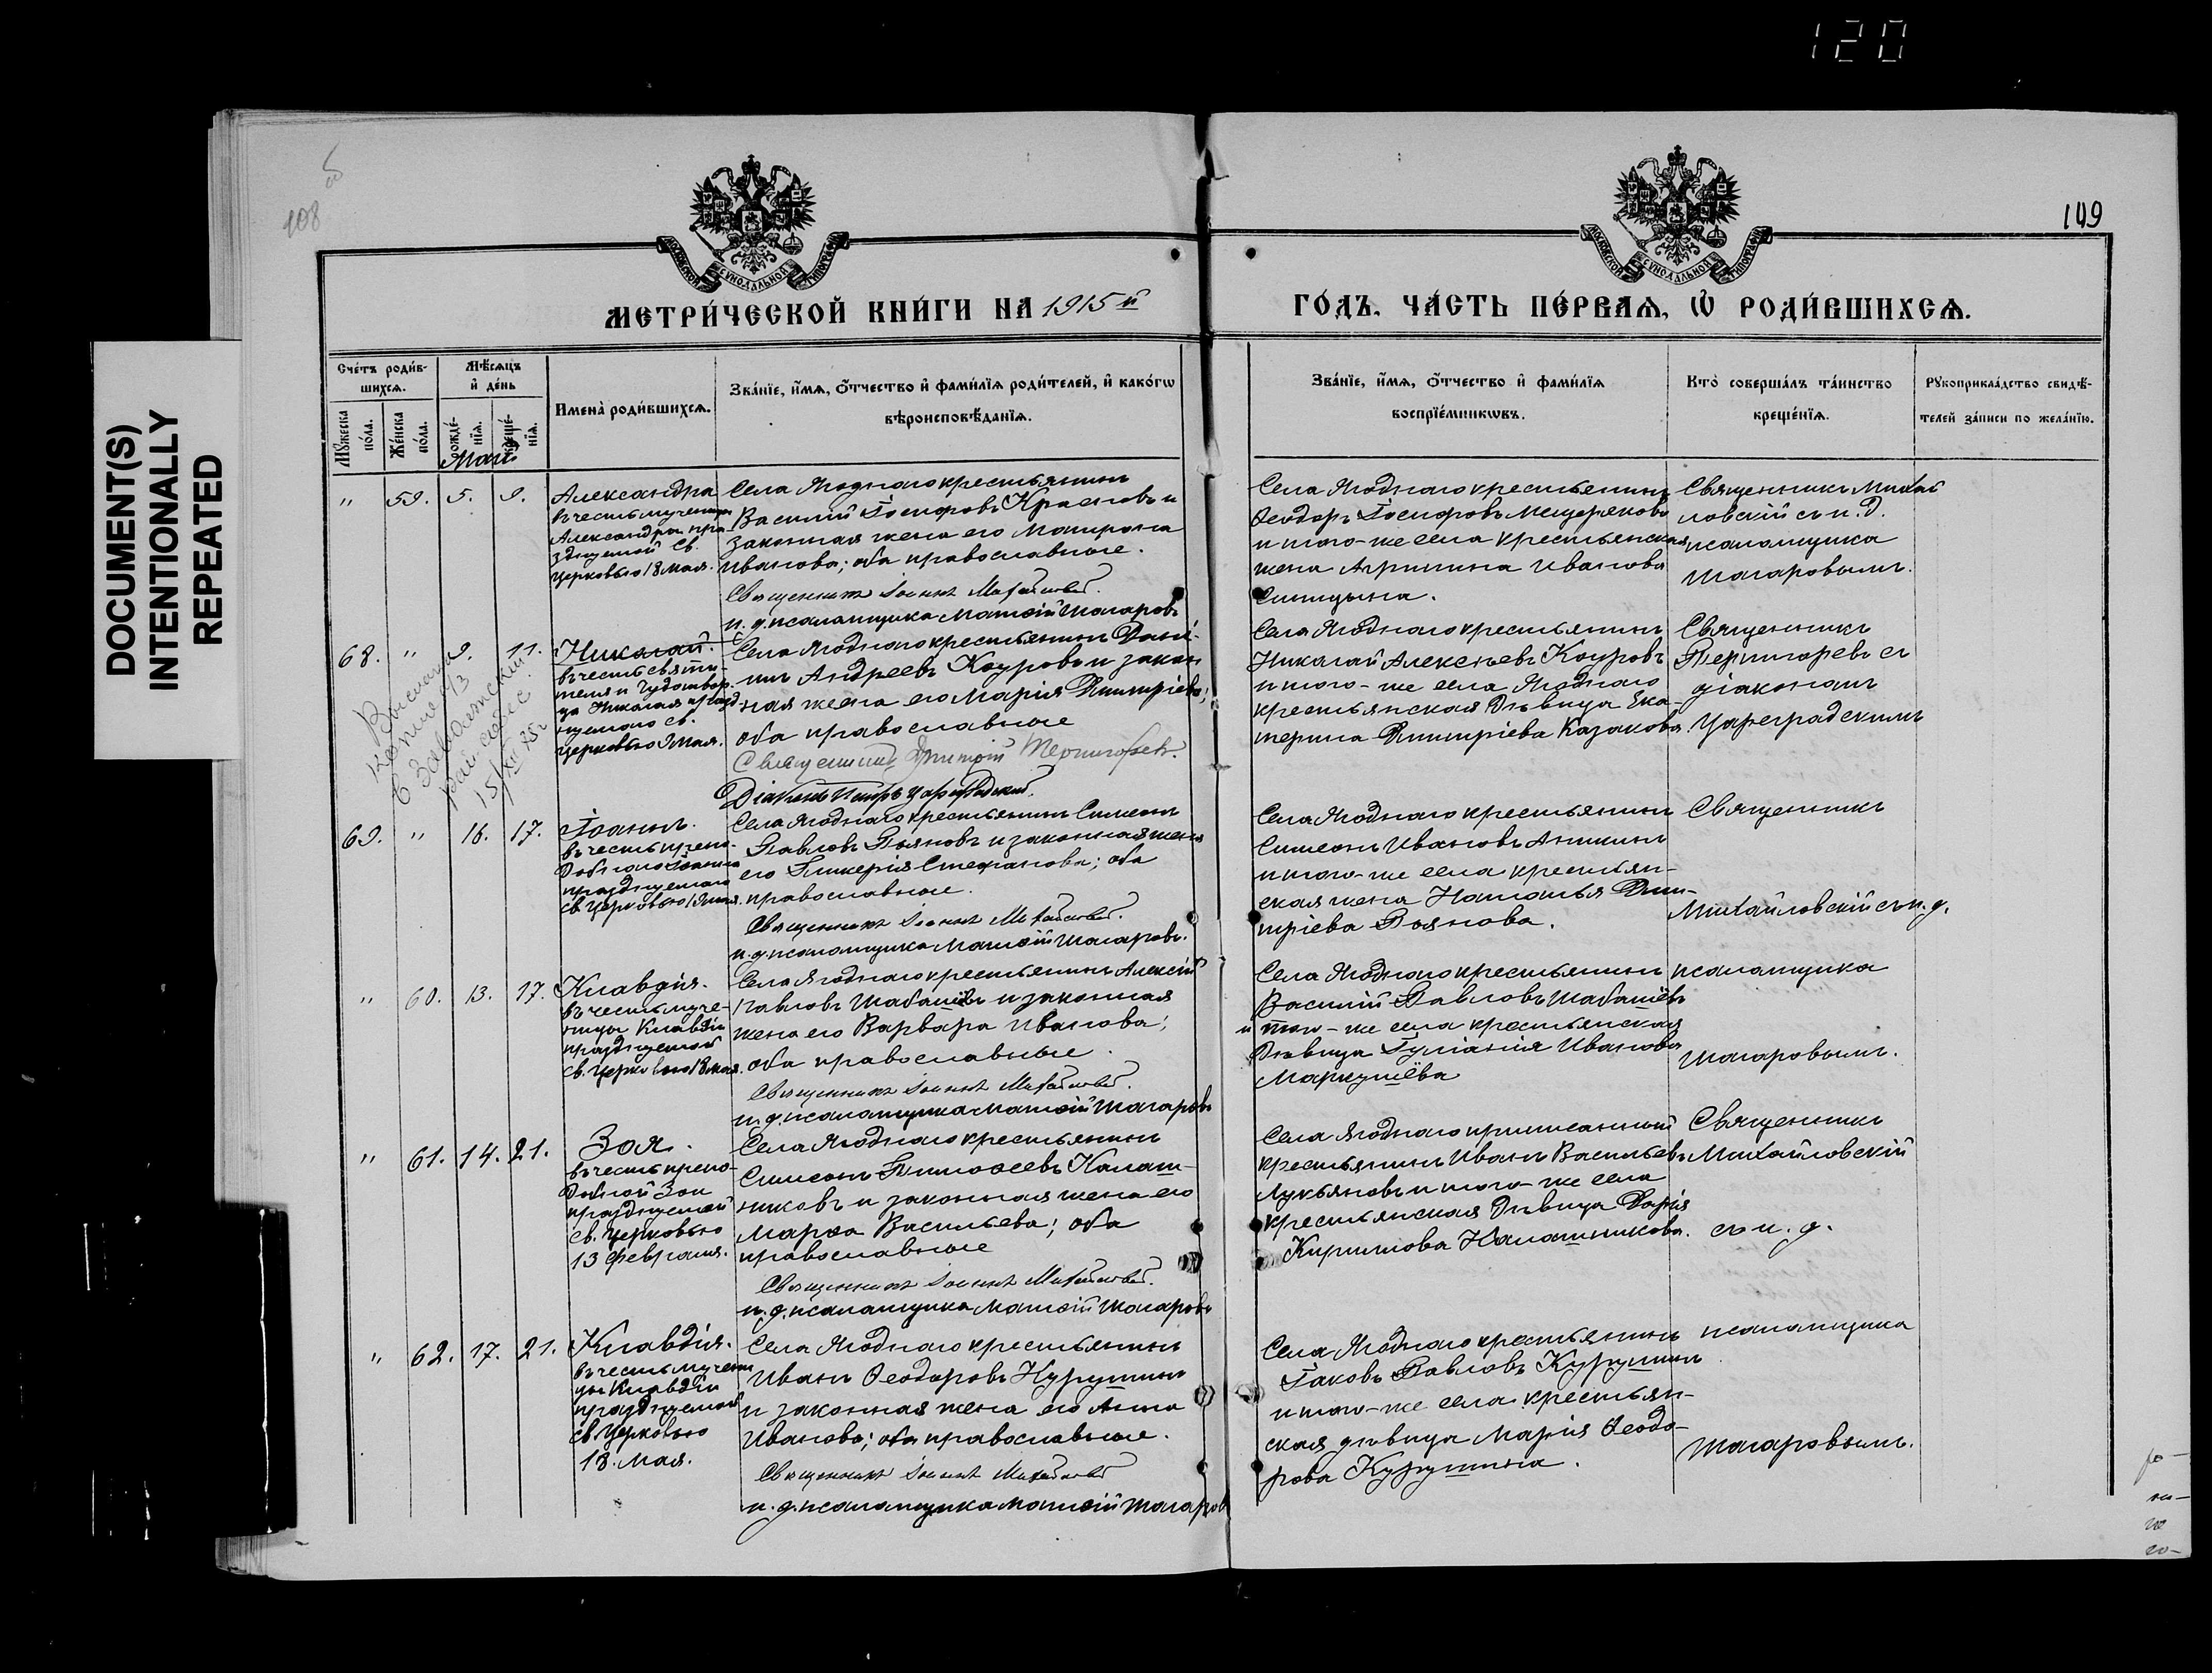 120
DOCUMENT(S)
INTENTIONALLY
REPEATED
108
149
МОСКОВСКОЙ СУНОДАЛЬНОЙ ТИПОГРАФІИ
МОСКОВСКОЙ СУНОДАЛЬНОЙ ТИПОГРАФІИ
МЕТРИ́ЧЕСКОЙ КНИ́ГИ НА 1915 й
ГО́ДЪ, ЧА́СТЬ ПЕ́РВАѦ, Ѡ҆ РОДИ́ВШИХСѦ.
Сче́тъ роди́в-
шихсѧ.
Мꙋ́жеска по́ла.
Же́нска по́ла.
Мѣ́сѧцъ
и҆ де́нь
рожде́-
нїѧ.
креще́-
нїѧ.
Имена̀ роди́вшихсѧ.
Зва́нїе, и҆́мѧ, ѻ҆́тчество и҆ фами́лїѧ роди́телей, и҆ како́гѡ
вѣроисповѣ́данїѧ.
Зва́нїе, и҆́мѧ, ѻ҆́тчество и҆ фами́лїѧ
воспрїе́мникѡвъ.
Кто̀ соверша́лъ та́инство
креще́нїѧ.
Рꙋкоприкла́дство свидѣ́-
телей за́писи по жела́нїю.
Май
" 59. 5. 9.
Александра
въ честь мученицы
Александры пра
зднуемой Св.
Церковью 18 мая.
Села Ягоднаго крестьянинъ
Василій Іосифовъ Красновъ и
законная жена его Матрона
Иванова; оба православные.
Священникъ Іоаннъ Михайловскій.
и. д. псаломщика Матѳій Шагаровъ
Села Ягоднаго крестьянинъ
Ѳеодоръ Іосифовъ Мещеряковъ
и того-же села крестьянская
жена Агрипина Иванова
Синицына.
Священникъ Михай
ловскій съ и. д.
псаломщика
Шагаровымъ.
68. " 9. 11.
Николай.
въ честь святи-
теля и Чудотвор-
ца Николая празд
нуемаго св.
Церковью 9 мая.
Выслана
копия
в Заволжский
15/XII 75
Села Ягоднаго крестьянинъ Дані-
илъ Андреевъ Кауровъ и закон
ная жена его Марія Димитріева;
оба православные
Священникъ Димитрій Терпигоревъ.
Діаконъ Петръ Цареградскій.
Села Ягоднаго крестьянинъ
Николай Алексѣевъ Кауровъ
и того-же села Ягоднаго
крестьянская дѣвица Ека-
терина Димитріева Казакова.
Священникъ
Терпигоревъ съ
діакономъ
Цареградскимъ
69. " 16. 17.
Іоаннъ.
въ честь препо-
добнаго Іоанна
празднуемаго
св. Церковью 19 мая.
Села Ягоднаго крестьянинъ Симеонъ
Павловъ Бояновъ и законная жена
его Гликерія Стефанова; оба
православные.
Священникъ Іоаннъ Михайловскій.
и. д. псаломщика Матѳій Шагаровъ.
Села Ягоднаго крестьянинъ
Симеонъ Ивановъ Аникинъ
и того-же села крестьян-
ская жена Наталья Дими-
тріева Боянова.
Священникъ
Михайловскій съ и. д.
" 60. 13. 17.
Клавдія.
въ честь муче-
ницы Клавдіи
празднуемой
св. Церковью 18 мая.
Села Ягоднаго крестьянинъ Алексій
Павловъ Шабашёвъ и законная
жена его Варвара Иванова;
оба православные.
Священникъ Іоаннъ Михайловскій.
и. д. псаломщика Матѳій Шагаровъ
Села Ягоднаго крестьянинъ
Василій Павловъ Шабашёвъ
и того-же села крестьянская
дѣвица Іуліанія Иванова
Маркушёва
псаломщика
Шагаровымъ.
" 61. 14. 21.
Зоя.
въ честь препо-
добной Зои
празднуемой
св. Церковью
13 февраля.
Села Ягоднаго крестьянинъ
Симеонъ Тимоѳеевъ Калаш-
никовъ и законная жена его
Марѳа Васильева; оба
православные
Священникъ Іоаннъ Михайловскій.
и. д. псаломщика Матѳій Шагаровъ
Села Ягоднаго приписанный
крестьянинъ Иванъ Васильевъ
Лукьяновъ и того-же села
крестьянская дѣвица Дарія
Кириллова Калашникова.
Священникъ
Михайловскій
съ и. д.
" 62. 17. 21.
Клавдія.
въ честь мучени
цы Клавдіи
празднуемой
св. Церковью
18. мая.
Села Ягоднаго крестьянинъ
Иванъ Ѳеодоровъ Курушинъ
и законная жена его Анна
Иванова; оба православные.
Священникъ Іоаннъ Михайловскій
и. д. псаломщика Матѳій Шагаровъ
Села Ягоднаго крестьянинъ
Іаковъ Павловъ Курушинъ
и того-же села крестьян-
ская дѣвица Марія Ѳеодо-
рова Курушина.
псаломщика
Шагаровымъ.